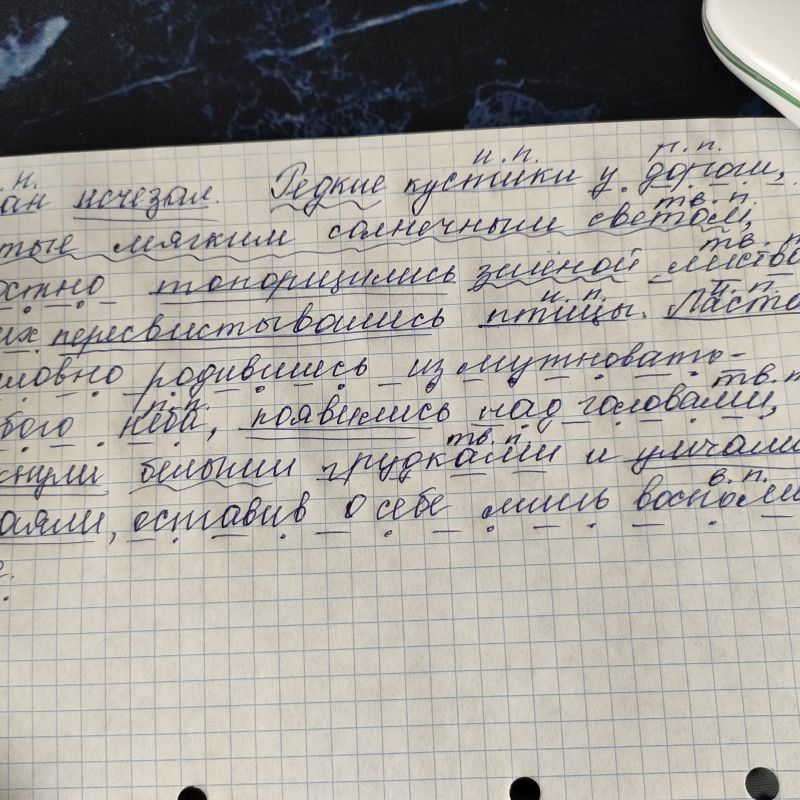 . н.
ан исчезал. Редкие кустики у дороги,
и. п. р. п.
тые мягким солнечным светом,
тв. п.
остно топорщились зелёной листво
тв. п
их пересвистывались птицы. Ласто
и. п. и. п.
ловно родившись из мутновато-
бого неба, появились над головами,
р. п. тв. п
кнули белыми грудками и умчали
тв. п.
аяли, оставив о себе лишь воспоми
в. п.